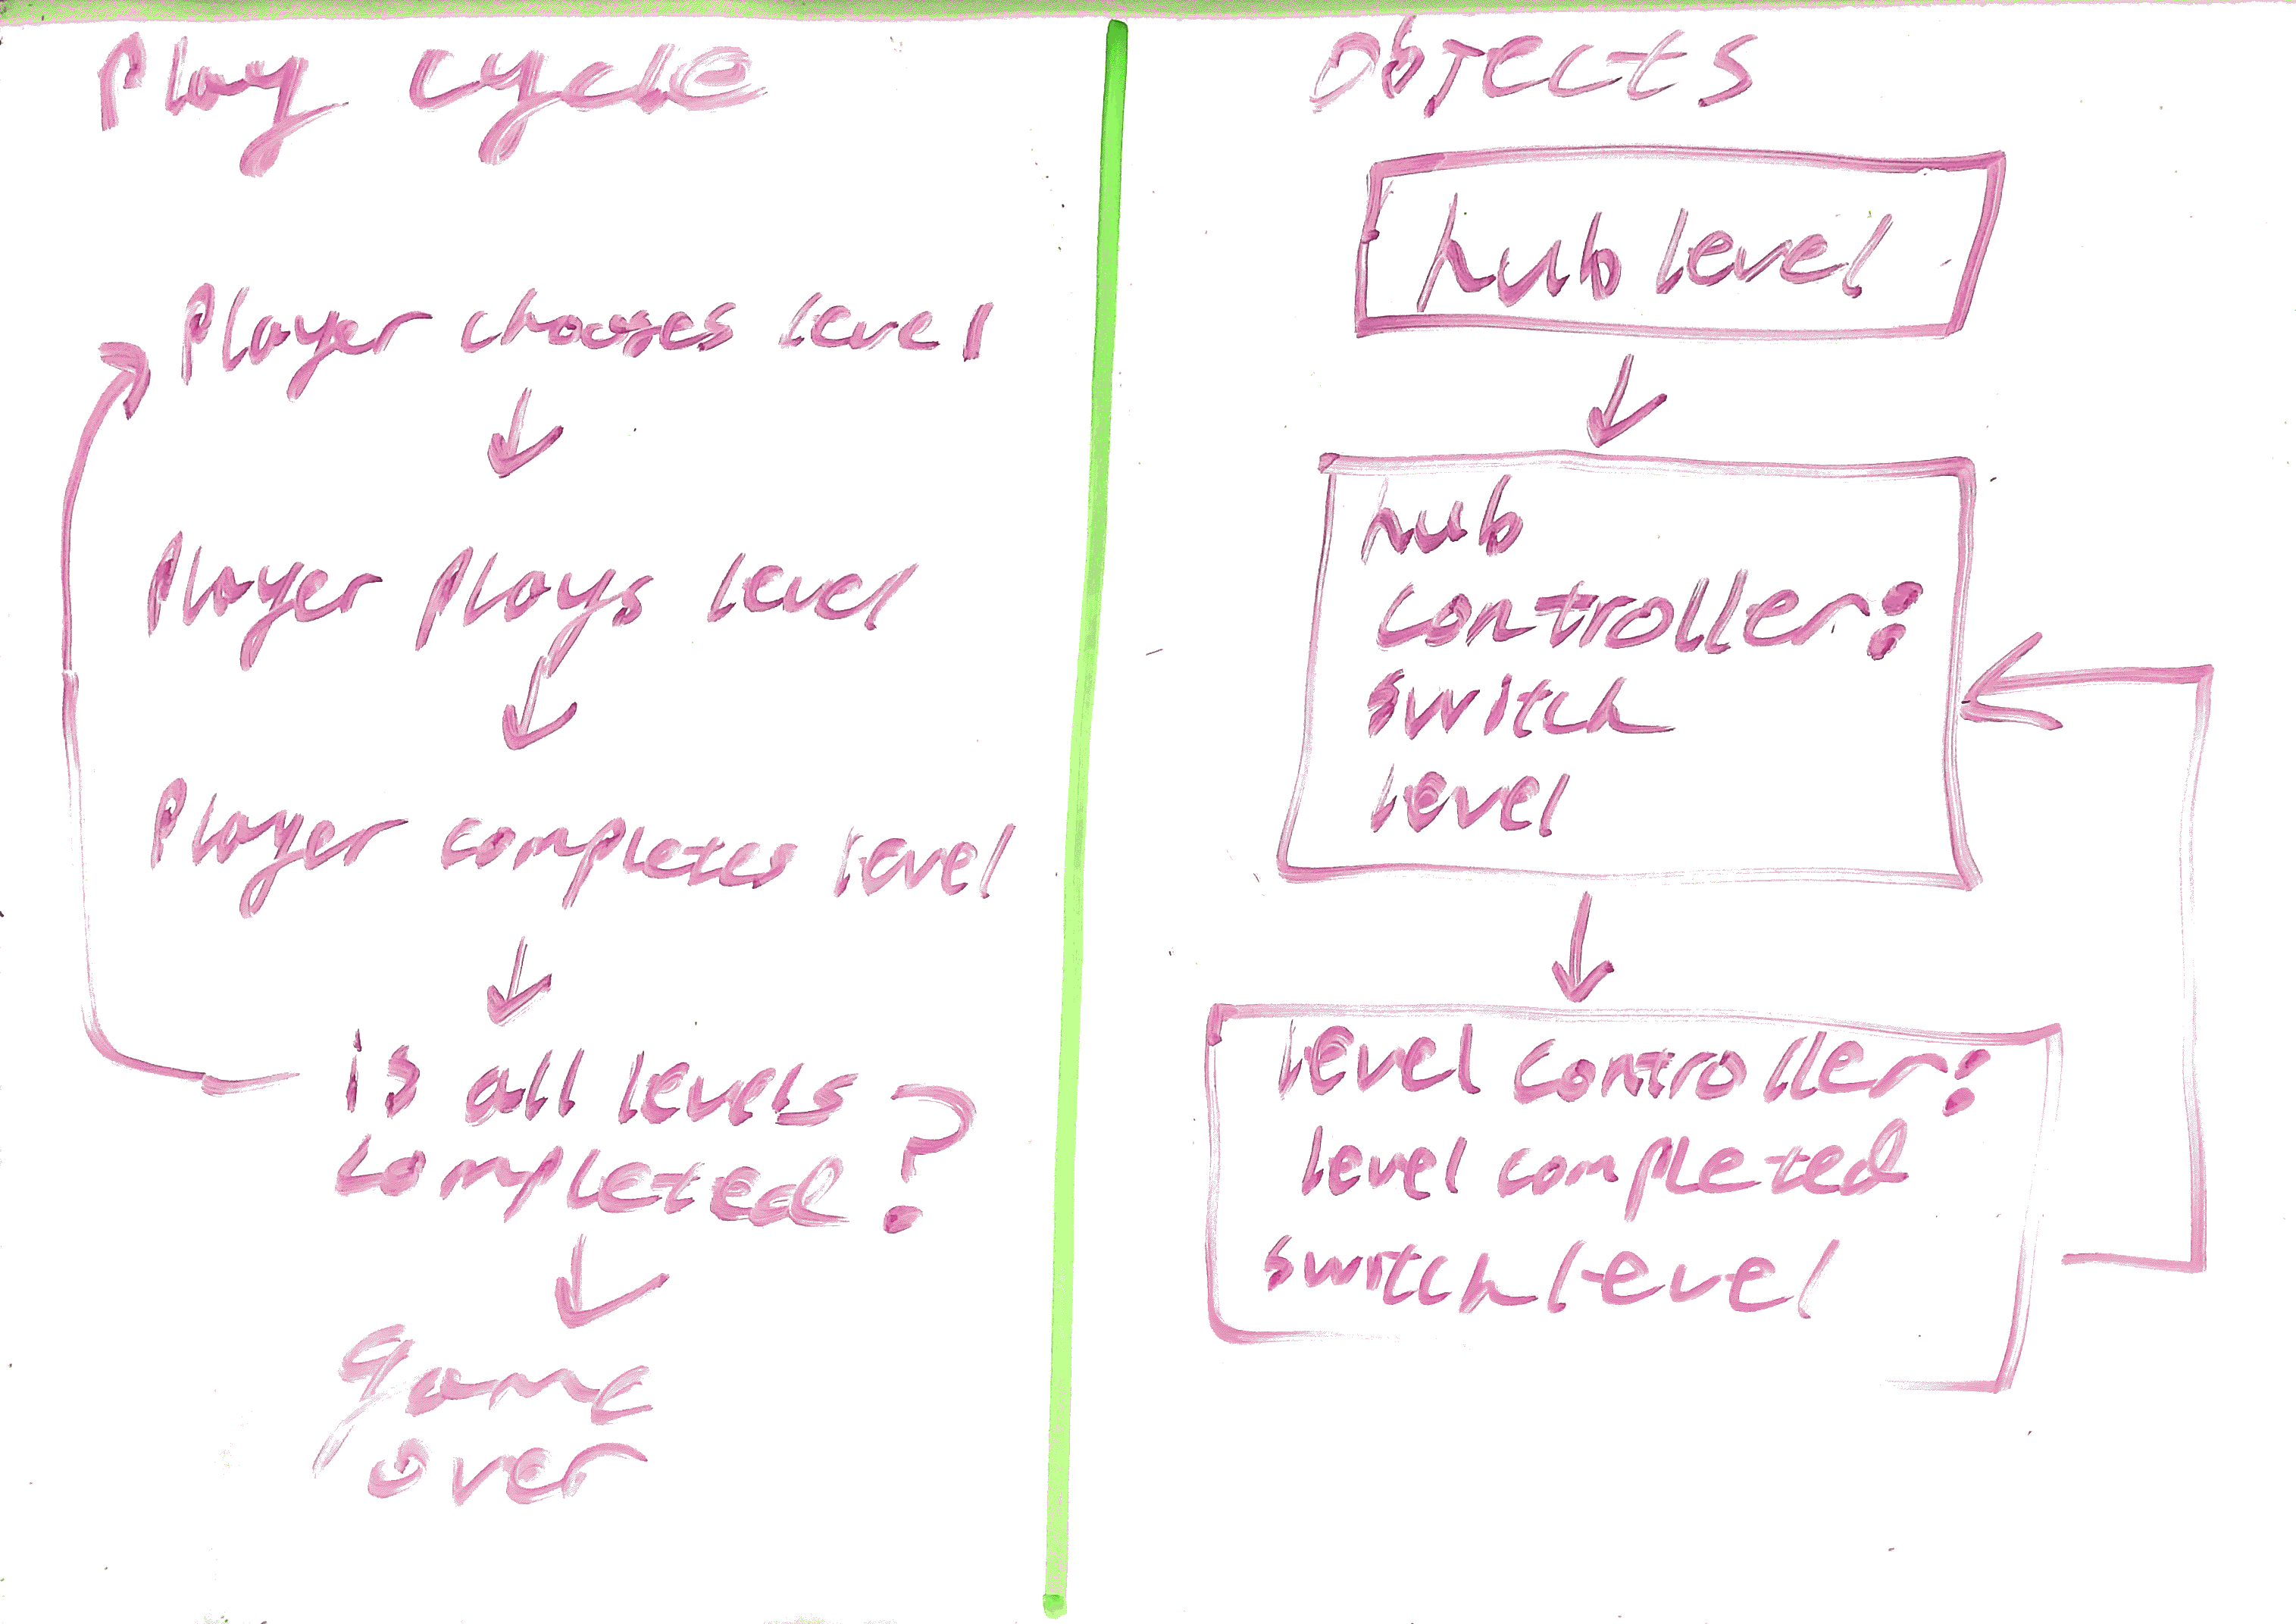 Play cycle
Player chooses level
Player plays level
Player completes level
is all levels
completed?
game
over
Objects
hub level
hub
controller:
switch
level
level controller:
level completed
switch level